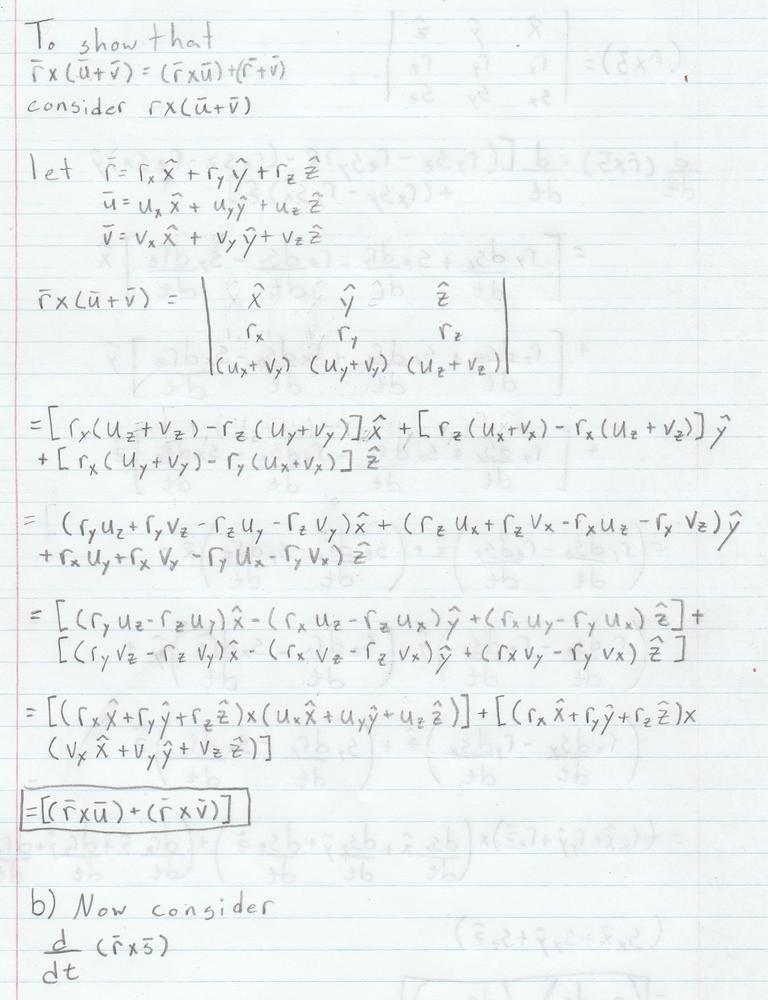 To show that
r̄x(ū+v̄) = (r̄xū)+(r̄+v̄)
consider rx(ū+v̄)
let r̄ = rₓ x̂ + r_y ŷ + r_z ẑ
ū = uₓ x̂ + u_y ŷ + u_z ẑ
v̄ = vₓ x̂ + v_y ŷ + v_z ẑ
r̄x(ū+v̄) = | x̂ ŷ ẑ |
| rₓ r_y r_z |
| (uₓ+vₓ) (u_y+v_y) (u_z+v_z) |
= [r_y(u_z+v_z) - r_z(u_y+v_y)] x̂ + [r_z(uₓ+vₓ) - rₓ(u_z+v_z)] ŷ
+ [rₓ(u_y+v_y) - r_y(uₓ+vₓ)] ẑ
= (r_y u_z + r_y v_z - r_z u_y - r_z v_y) x̂ + (r_z uₓ + r_z vₓ - rₓ u_z - rₓ v_z) ŷ
+ rₓ u_y + rₓ v_y - r_y uₓ - r_y vₓ) ẑ
= [(r_y u_z - r_z u_y) x̂ - (rₓ u_z - r_z uₓ) ŷ + (rₓ u_y - r_y uₓ) ẑ] +
[(r_y v_z - r_z v_y) x̂ - (rₓ v_z - r_z vₓ) ŷ + (rₓ v_y - r_y vₓ) ẑ]
= [(rₓ x̂ + r_y ŷ + r_z ẑ)x(uₓ x̂ + u_y ŷ + u_z ẑ)] + [(rₓ x̂ + r_y ŷ + r_z ẑ)x
(vₓ x̂ + v_y ŷ + v_z ẑ)]
= [(r̄xū) + (r̄xv̄)]
b) Now consider
d/dt (r̄xs̄)